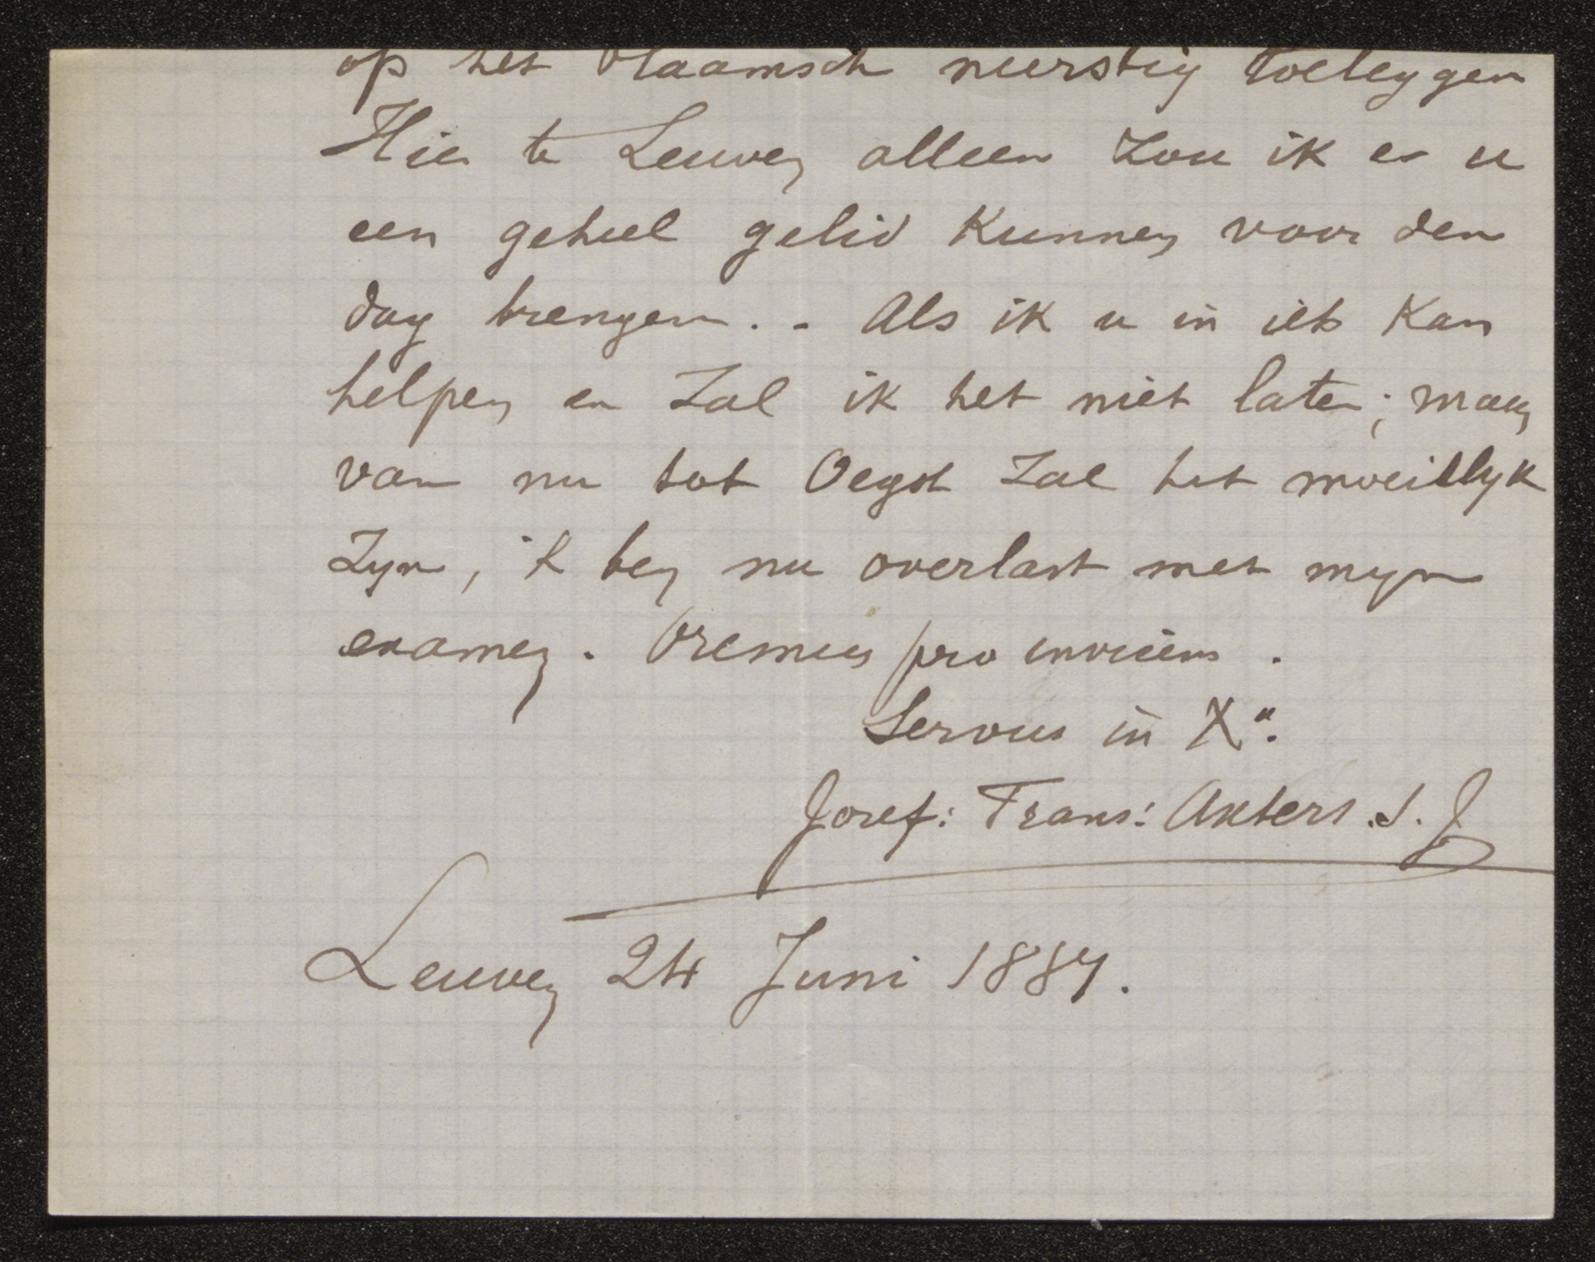 op het Vlaamsch neerstig toeleggen
Hier te Leuven alleen zou ik er u
een geheel gelid kunnen voor den
dag brengen. . Als ik u in iets kan
helpen en zal ik het niet laten; maar
van nu tot Oegst zal het moeilijk
zyn, ik ben nu overlast met myn
examen. Oremus pro invicem.
Servus in X°.
Josef: Frans: Axters. S. J
Leuven 24 Juni 1887.